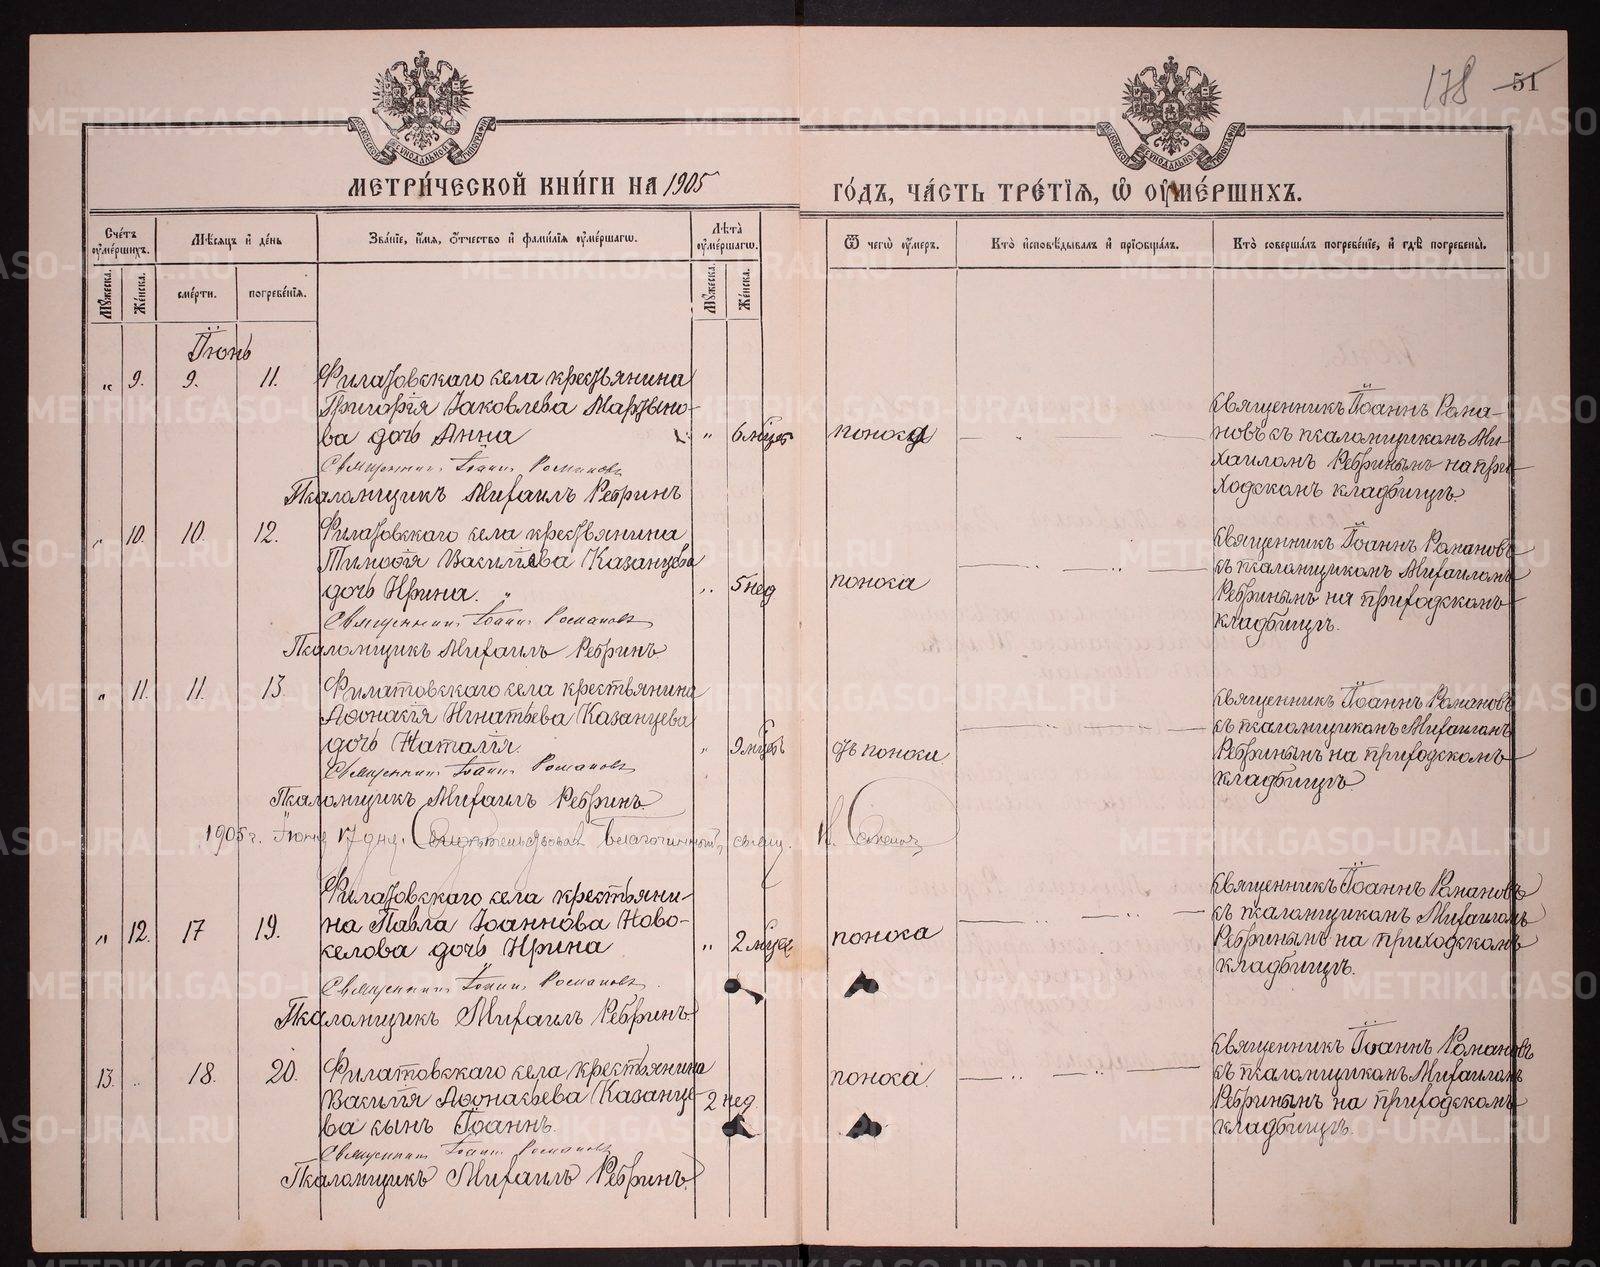 178 51
МЕТРИ́ЧЕСКОЙ КНИ́ГИ НА 1905
ГО́ДЪ, ЧА́СТЬ ТРЕ́ТІѦ, Ѡ҆ ОУ҆МЕ́РШИХЪ.
Сче́тъ оу҆ме́ршихъ.
Мꙋ́жеска.
Же́нска.
Мѣ́сяцъ и҆ де́нь
сме́рти.
погребе́нїя.
Зва́нїе, и҆́мя, ѻ҆́тчество и҆ фами́лїя оу҆ме́ршагѡ.
Лѣ́та оу҆ме́ршагѡ.
Мꙋ́жеска.
Же́нска.
Ѿ чегѡ̀ оу҆́меръ.
Кто̀ и҆сповѣ́дывалъ и҆ прїѡбща́лъ.
Кто̀ соверша́лъ погребе́нїе, и҆ гдѣ̀ погребены̀.
Іюнь
„ 9. 9. 11. Филатовскаго села крестьянина
Григорія Іаковлева Мартыно-
ва дочь Анна „ 6 мѣцев поноса
Священникъ Іоаннъ Романовъ
Псаломщикъ Михаилъ Ребринъ
Священникъ Іоаннъ Рома-
новъ съ псаломщикомъ Ми-
хаиломъ Ребринымъ на при-
ходском кладбищѣ.
„ 10. 10. 12. Филатовскаго села крестьянина
Тимофія Васильева Казанцева
дочь Ирина. „ 5 нед поноса
Священникъ Іоаннъ Романовъ
Псаломщикъ Михаилъ Ребринъ
Священникъ Іоаннъ Романовъ
съ псаломщикомъ Михаиломъ
Ребринымъ на приходскомъ
кладбищѣ.
„ 11. 11. 13. Филатовскаго села крестьянина
Аѳонасія Игнатьева Казанцева
дочь Наталія. „ 9 мѣцев отъ поноса
Священникъ Іоаннъ Романовъ
Псаломщикъ Михаилъ Ребринъ
Священникъ Іоаннъ Романовъ
съ псаломщикомъ Михаиломъ
Ребринымъ на приходскомъ
кладбищѣ
1905 г. Іюня 17 дня. Свидѣтельствовалъ благочинный, свящ.
„ 12. 17 19. Филатовскаго села крестьяни-
на Павла Іоаннова Ново-
селова дочь Ирина „ 2 мѣцев поноса
Священникъ Іоаннъ Романовъ
Псаломщикъ Михаилъ Ребринъ
Священникъ Іоаннъ Романовъ
съ псаломщикомъ Михаиломъ
Ребринымъ на приходскомъ
кладбищѣ.
13. „ 18. 20. Филатовскаго села крестьянина
Василія Аѳонасьева Казанце-
ва сынъ Іоаннъ. 2 нед поноса.
Священникъ Іоаннъ Романовъ
Псаломщикъ Михаилъ Ребринъ
Священникъ Іоаннъ Романовъ
съ псаломщикомъ Михаиломъ
Ребринымъ на приходскомъ
кладбищѣ.
METRIKI.GASO-URAL.RU